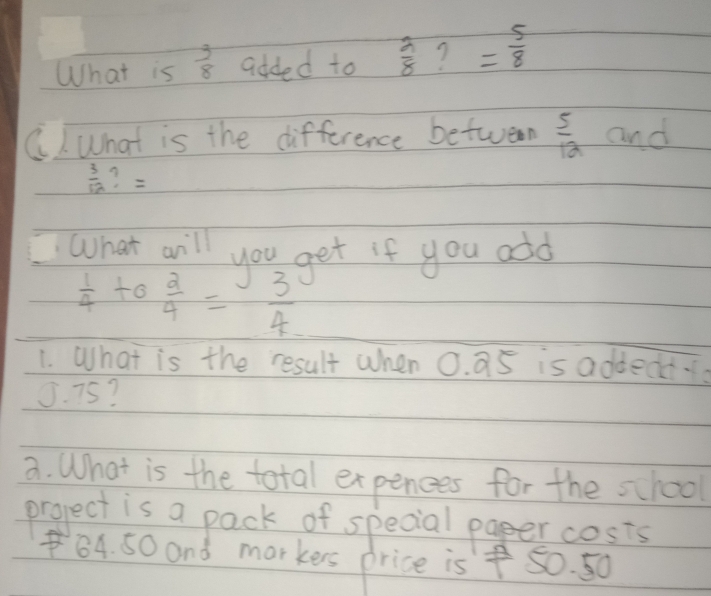 What is 3/8 added to 2/8 ? = 5/8
What is the difference between 5/12 and
3/12 ? =
What will you get if you add
1/4 to 2/4 = 3/4
1. What is the result when 0.25 is added
.75?
2. What is the total expences for the school
project is a pack of special paper costs
₱64.50 and markers price is ₱ 50.50